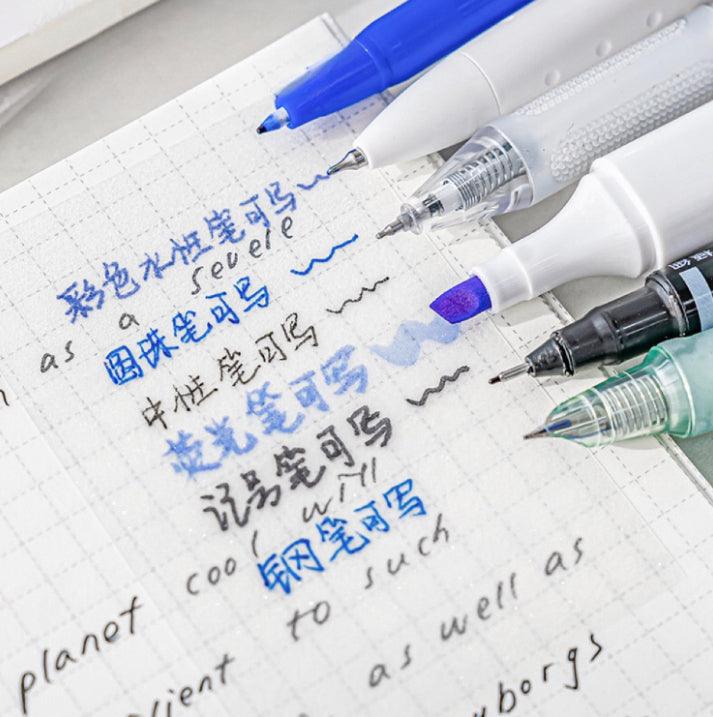 彩色水性笔可写
severe
as a
圆珠笔可写
中性笔可写
荧光笔可写
记号笔可写
cool will
钢笔可写
planet
to such
as well as